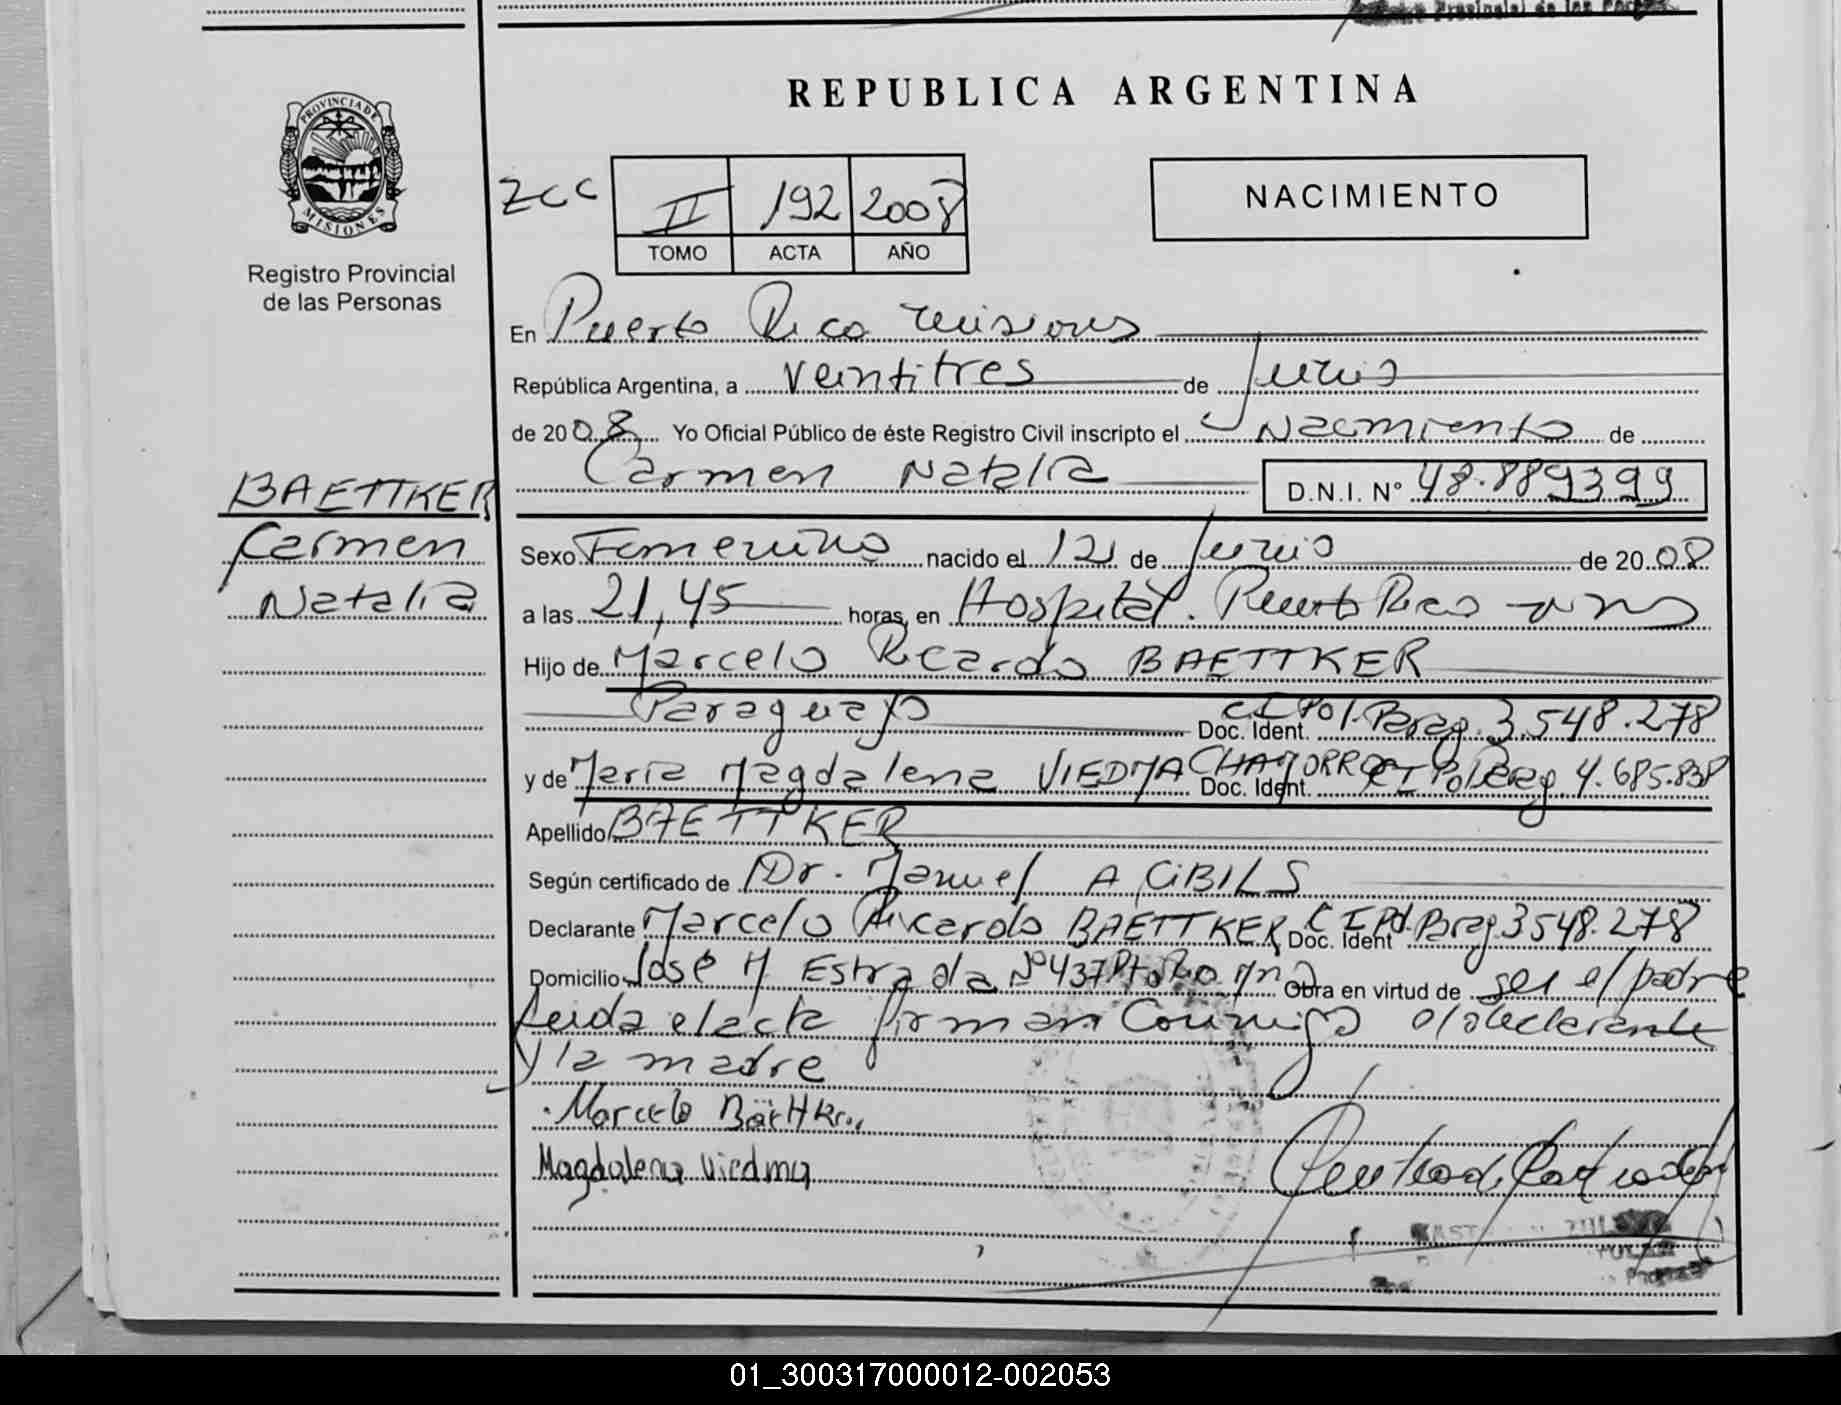 Provincial de las Pers
REPUBLICA ARGENTINA
PROVINCIA DE
MISIONES
Registro Provincial
de las Personas
ZCC
II 192 2008
TOMO ACTA AÑO
NACIMIENTO
En Puerto Rico Misiones
República Argentina, a veintitres de Junio
de 2008 Yo Oficial Público de éste Registro Civil inscripto el Nacimiento de
Carmen Natalia D.N.I. N° 48.889399
BAETTKER
Carmen
Natalia
Sexo Femenino nacido el 12 de Junio de 2008
a las 21,45 horas, en Hospital. Puerto Rico
Hijo de Marcelo Ricardo BAETTKER
Paraguayo Doc. Ident. CIPol. Parag. 3.548.278
y de Maria Magdalena VIEDMA CHAMORRO Doc. Ident. CI Pol Parag 4.685.838
Apellido BAETTKER
Según certificado de Dr. Manuel A CIBILS
Declarante Marcelo Ricardo BAETTKER Doc. Ident CIPol. Parag 3548.278
Domicilio José M Estrada N° 437 Pto Rico Mns Obra en virtud de ser el padre
Leida el acta firman Conmigo el declarante
y la madre
Marcelo Bäettker
Magdalena Viedma
01_300317000012-002053